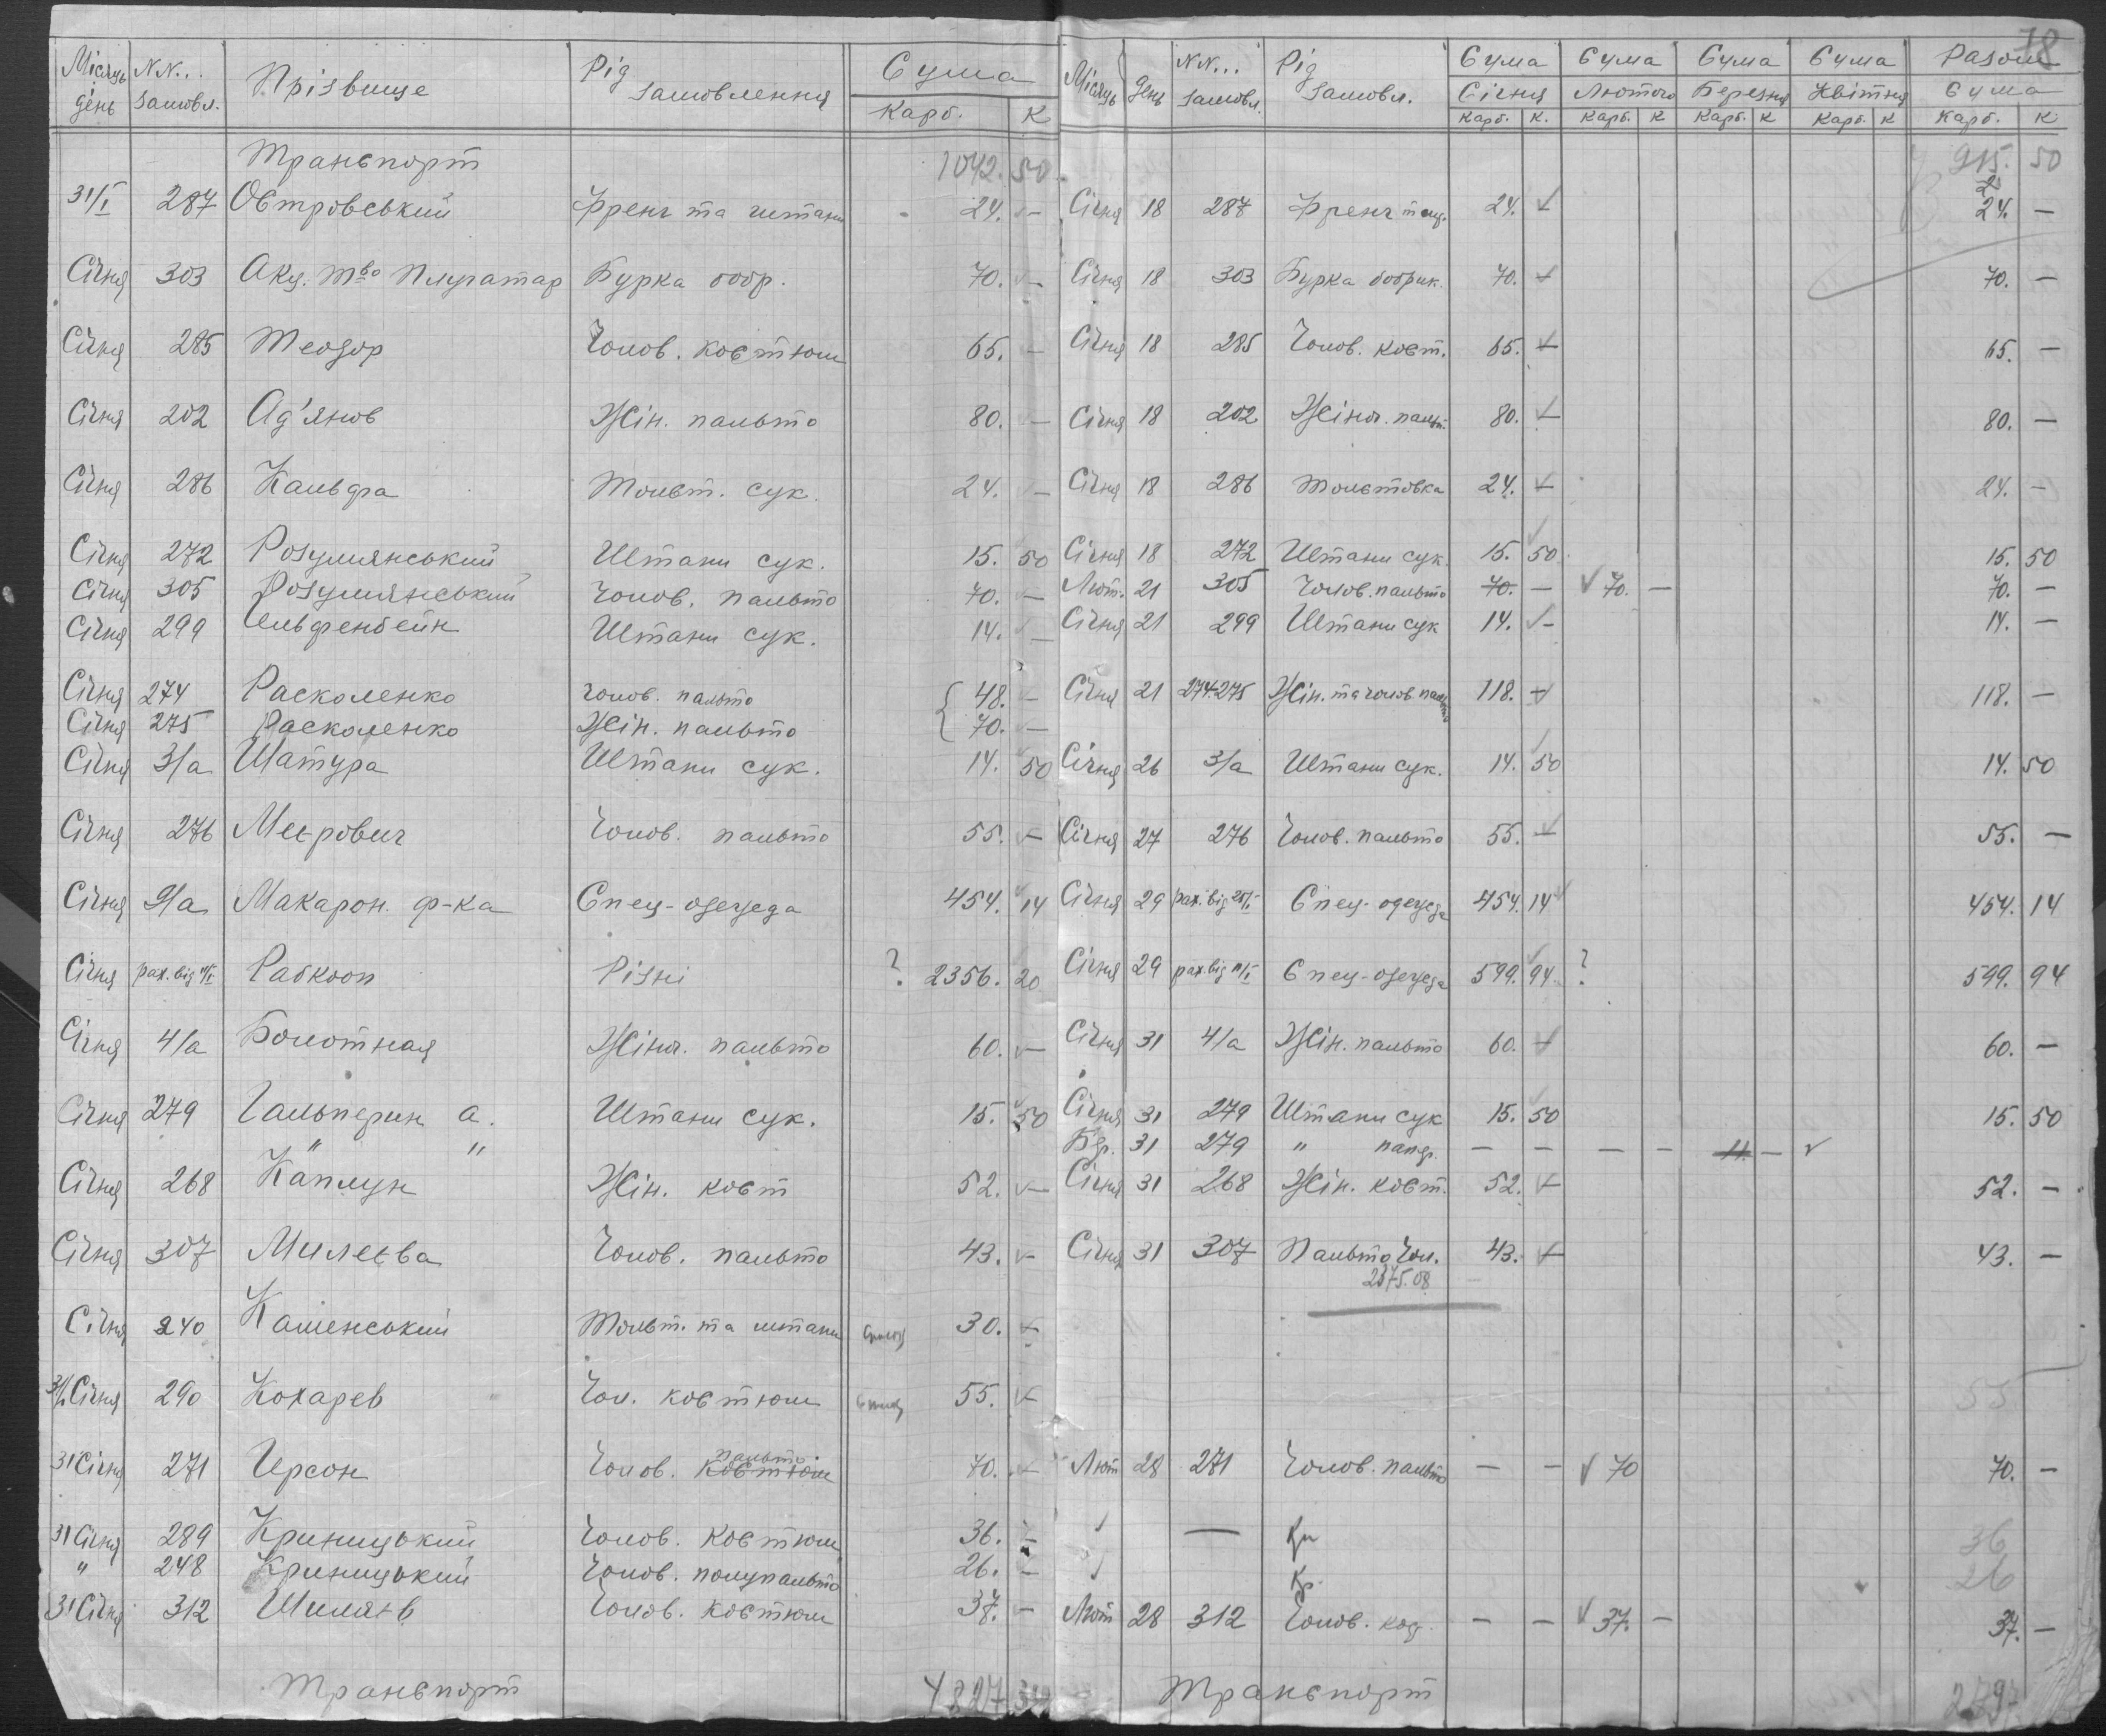 78
Місяць день NN... замовл. Прізвище Рід замовлення Сума Карб. К Місяць День NN... замовл. Рід замовл. Сума Січня Карб. К. Сума Лютого Карб. К Сума Березня Карб. К Сума Квітня Карб. К Разом Сума Карб. К
Транспорт 1042. 50 915. 50
31/I 287 Островський Френч та штани 24. — Січня 18 287 Френч 24. — 24. —
Січня 303 Акц. Т-во Плугатар Бурка бобр. 70. — Січня 18 303 Бурка бобрик. 70. — 70. —
Січня 285 Теодор Чолов. костюм 65. — Січня 18 285 Чолов. кост. 65. — 65. —
Січня 202 Ад'янов Жін. пальто 80. — Січня 18 202 Жіноч. пальт. 80. — 80. —
Січня 286 Кальфа Толст. сук. 24. — Січня 18 286 Толстовка 24. — 24. —
Січня 272 Розумянський Штани сук. 15. 50 Січня 18 272 Штани сук. 15. 50 15. 50
Січня 305 Розумянський Чолов. пальто 70. — Лют. 21 305 Чолов. пальто 70. — 70. — 70. —
Січня 299 Ельфенбейн Штани сук. 14. — Січня 21 299 Штани сук 14. — 14. —
Січня 274 Расколенко чолов. пальто 48. — Січня 21 274-275 Жін. та чолов. пальто 118. — 118. —
Січня 275 Расколенко Жін. пальто 70. —
Січня 3/а Шатура Штани сук. 14. 50 Січня 26 3/а Штани сук. 14. 50 14. 50
Січня 276 Меєрович Чолов. пальто 55. — Січня 27 276 Чолов. пальто 55. — 55. —
Січня 9/а Макарон. ф-ка Спец-одежда 454. 14 Січня 29 рах. від Спец-одежда 454. 14 454. 14
Січня рах. від Рабкооп Різні ? 2356. 20 Січня 29 рах. від Спец-одежда 599. 94 ? 599. 94
Січня 4/а Болотная Жіноч. пальто 60. — Січня 31 4/а Жін. пальто 60. — 60. —
Січня 279 Гальперин а. Штани сук. 15. 50 Січня 31 279 Штани сук 15. 50 15. 50
" " 31 279 " — — — — 11. —
Січня 268 Каплун Жін. кост 52. — Січня 31 268 Жін. кост. 52. — 52. —
Січня 307 Милеєва Чолов. пальто 43. — Січня 31 307 Пальто Чол. 43. — 43. —
2375.08
Січня 240 Каменський Толст. та штани 30. —
31/I Січня 290 Кохарев Чол. костюм 55. — 55
31 Січня 271 Герсон Чолов. костюм пальто. 70. — Лют 28 271 Чолов. пальто — — 70 70. —
31 Січня 289 Криницький Чолов. костюм 36. — — Кр 36
" 248 Криницький Чолов. полупальто 26. — Кр. 26
31 Січня 312 Шиляєв Чолов. костюм 37. — Лют 28 312 Чолов. — — 37. — 37. —
Транспорт 4827 Транспорт